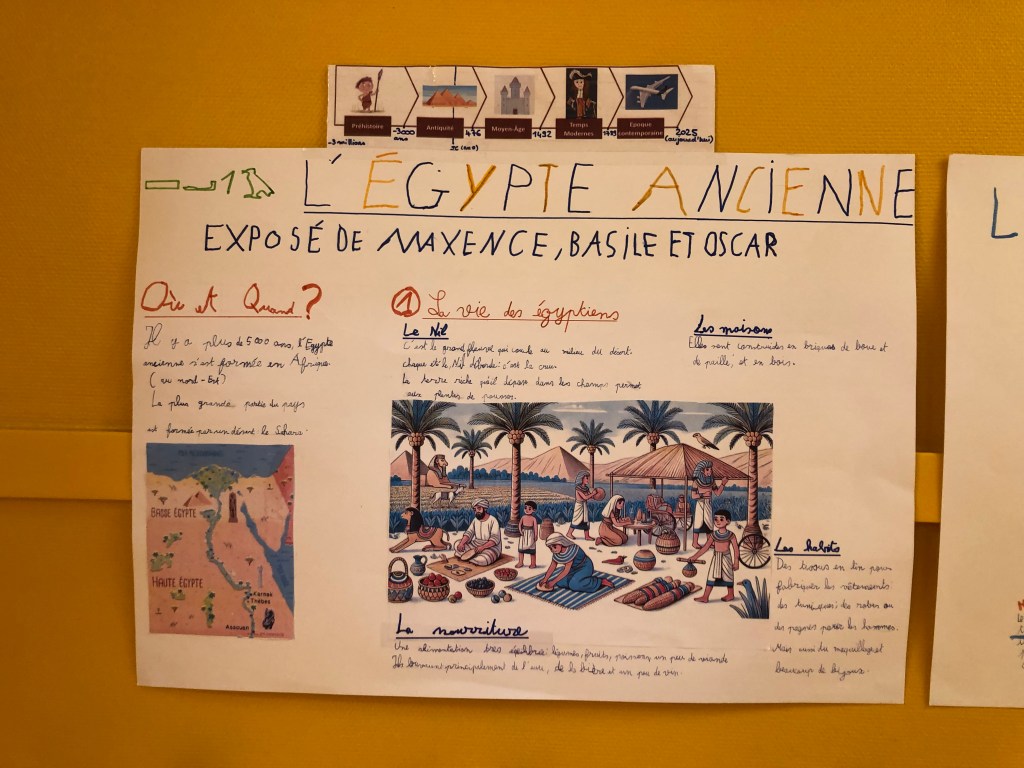 Préhistoire
Antiquité
Moyen-Âge
Temps
Modernes
Epoque
contemporaine
-3 millions
-3000
ans
476
1492
1789
2025
(aujourd'hui)
L'ÉGYPTE ANCIENNE
EXPOSÉ DE MAXENCE, BASILE ET OSCAR
Où et Quand?
Il y a plus de 5000 ans, l'Egypte
ancienne s'est formée en Afrique.
(au nord-Est)
La plus grande partie du pays
est formée par un désert le Sahara.
BASSE ÉGYPTE
HAUTE ÉGYPTE
Karnak
Thèbes
Assouan
1 La vie des égyptiens
Le Nil
C'est le grand fleuve qui coule au milieu du désert.
chaque été le Nil déborde: c'est la crue.
La terre riche qu'il dépose dans les champs permet
aux plantes de pousser.
Les maisons
Elles sont construites en briques de boue et
de paille, et en bois.
Les habits
Des tissus en lin pour
fabriquer les vêtements
des tuniques; des robes ou
des pagnes pour les hommes.
Mais aussi du maquillage et
beaucoup de bijoux.
La nourriture
Une alimentation très équilibrée: légumes, fruits, poissons, un peu de viande
Ils boivent principalement de l'eau, de la bière et un peu de vin.
L